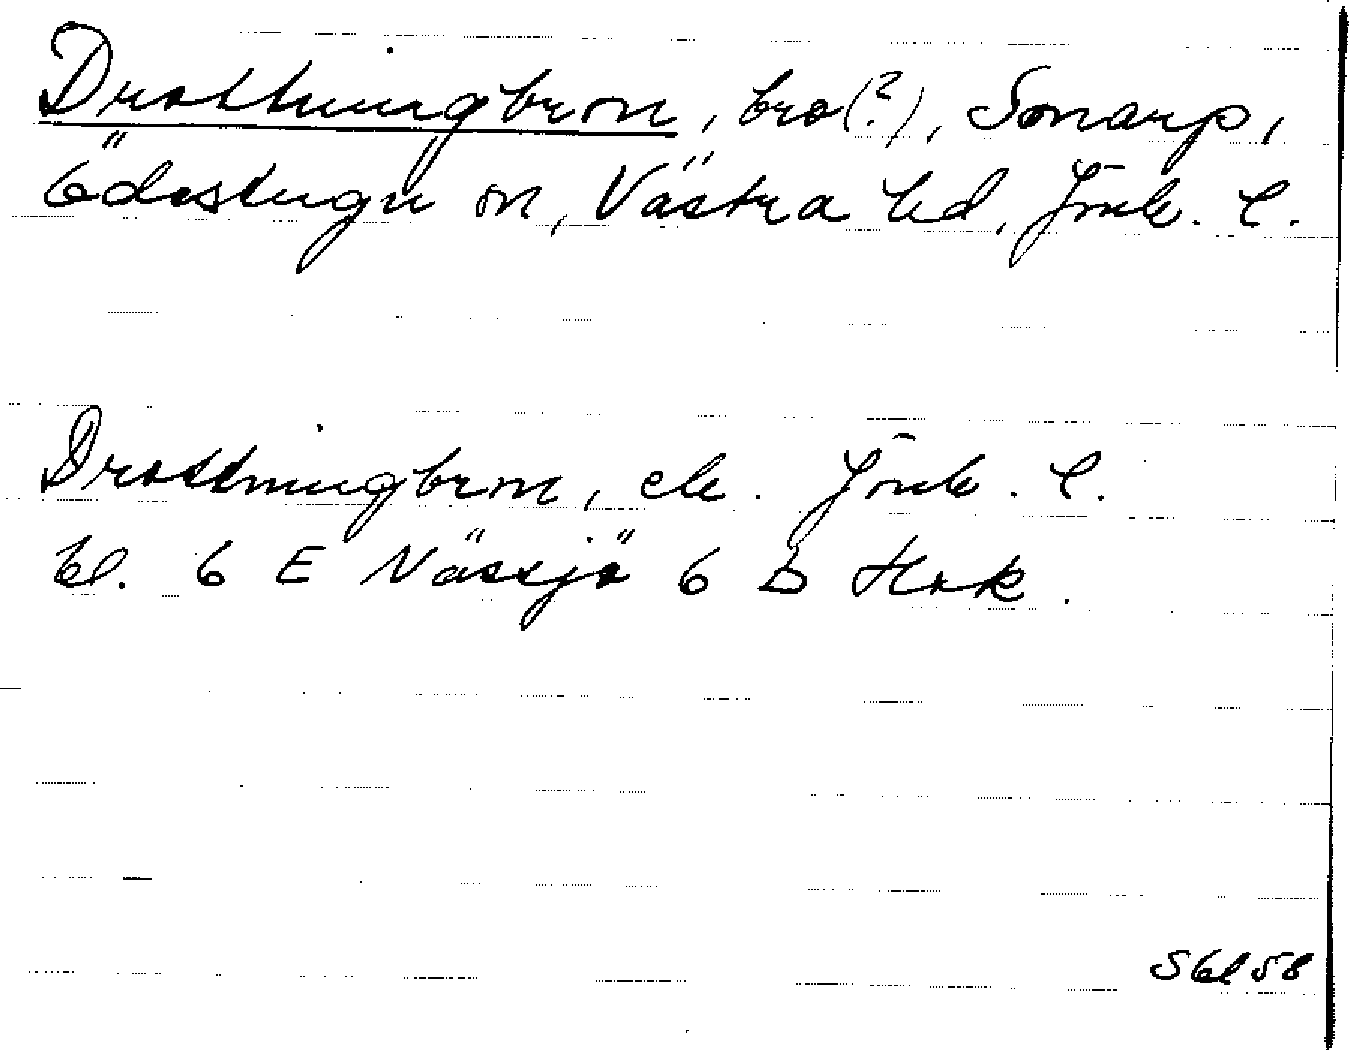 Drottningbron, bro(?), Sonarp,
Ödestugu sn, Västra hd, Jönk. l.
Drottningbron, ek. Jönk. l.
bl. 6 E Nässjö 6 D Hok.
Sbl 58